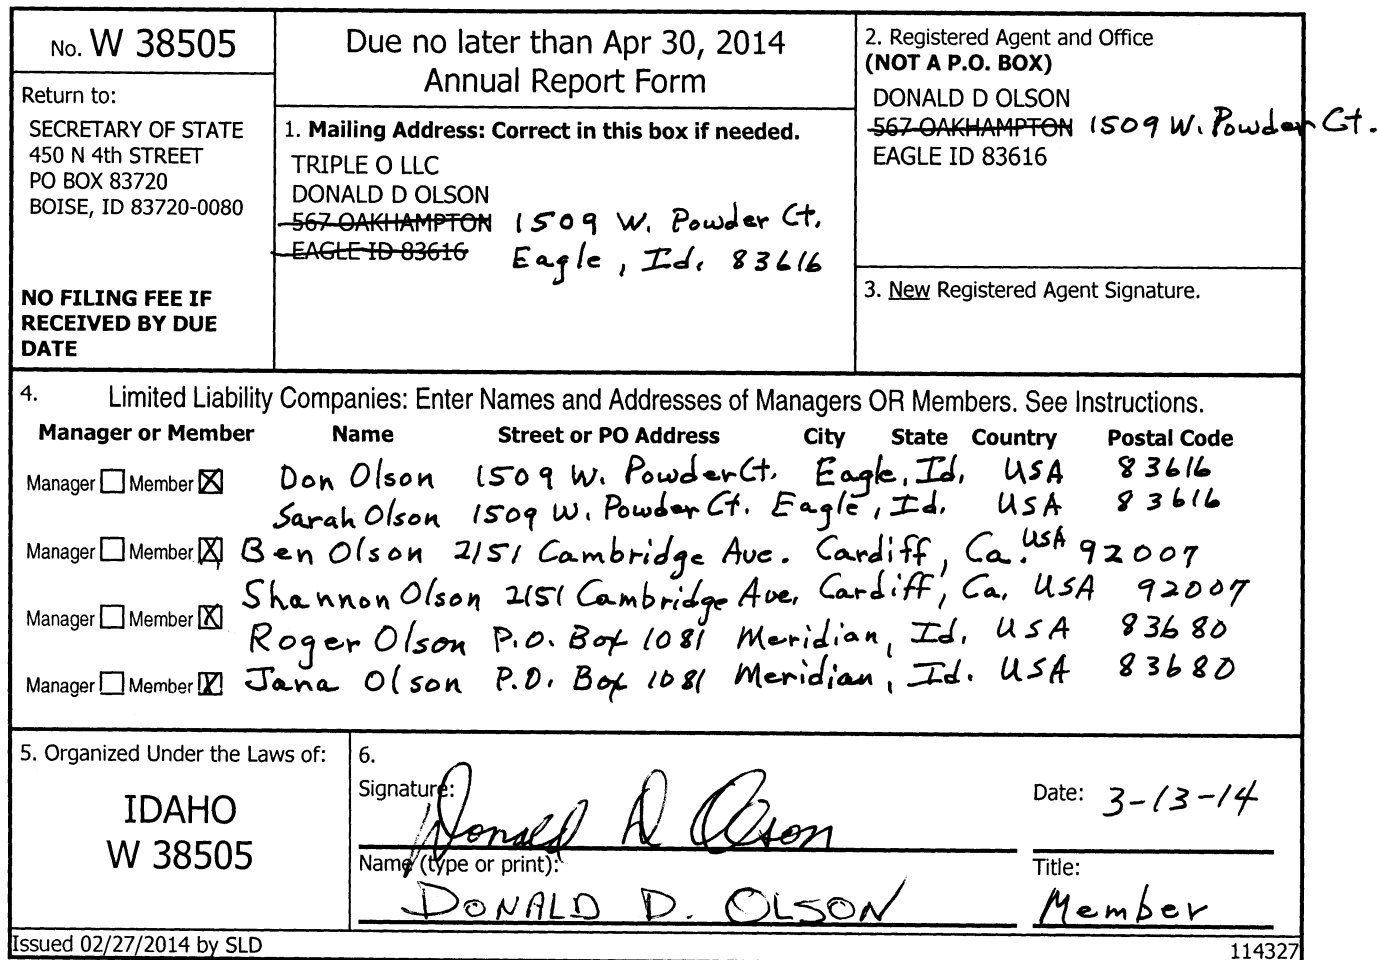 No. W 38505
Return to:
SECRETARY OF STATE
450 N 4th STREET
PO BOX 83720
BOISE, ID 83720-0080
NO FILING FEE IF
RECEIVED BY DUE
DATE
Due no later than Apr 30, 2014
Annual Report Form
1. Mailing Address: Correct in this box if needed.
TRIPLE O LLC
DONALD D OLSON
567 OAKHAMPTON 1509 W. Powder Ct.
EAGLE ID 83616 Eagle, Id. 83616
2. Registered Agent and Office
(NOT A P.O. BOX)
DONALD D OLSON
567 OAKHAMPTON 1509 W. Powder Ct.
EAGLE ID 83616
3. New Registered Agent Signature.
4. Limited Liability Companies: Enter Names and Addresses of Managers OR Members. See Instructions.
Manager or Member Name Street or PO Address City State Country Postal Code
Manager Member Don Olson 1509 W. Powder Ct. Eagle, Id. USA 83616
Sarah Olson 1509 W. Powder Ct. Eagle, Id. USA 83616
Manager Member Ben Olson 2151 Cambridge Ave. Cardiff, Ca. USA 92007
Shannon Olson 2151 Cambridge Ave. Cardiff, Ca. USA 92007
Manager Member Roger Olson P.O. Box 1081 Meridian, Id. USA 83680
Manager Member Jana Olson P.O. Box 1081 Meridian, Id. USA 83680
5. Organized Under the Laws of:
IDAHO
W 38505
6.
Signature: Donald D Olson Date: 3-13-14
Name (type or print): Title:
DONALD D. OLSON Member
Issued 02/27/2014 by SLD 114327